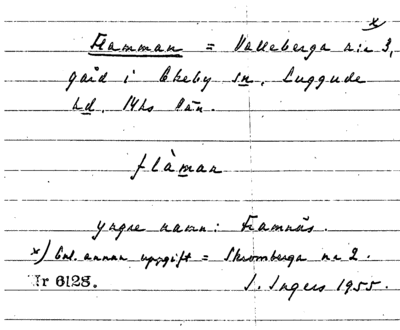 x
Flamman = Valleberga n:r 3,
gård i Ekeby sn, Luggude
hd, Mhs län.
flàman
yngre namn: Framnäs.
x) Enl. annan uppgift = Skromberga nr 2.
Nr 6128. I. Ingers 1955.